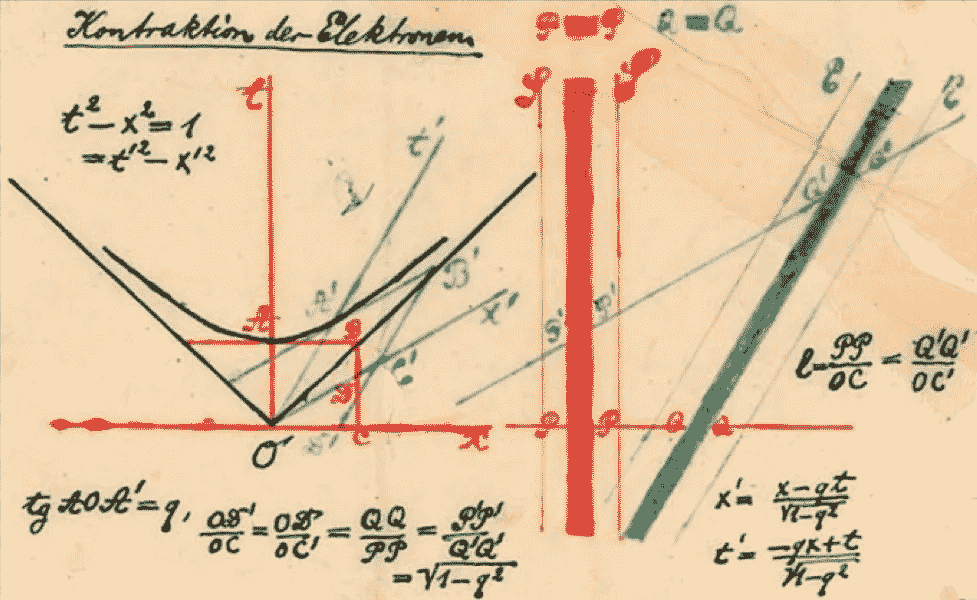 Kontraktion der Elektronen
t² − x² = 1
= t'² − x'²
t
t'
A
A'
B
B'
x'
C'
D
D'
O
C
x
P P
Q = Q
P' P'
Q' Q'
P P
Q Q
l = PP/OC = Q'Q'/OC'
tg AOA' = q, OD'/OC = OD/OC' = QQ/PP = P'P'/Q'Q'
= √1−q²
x' = x−qt/√1−q²
t' = −qx+t/√1−q²